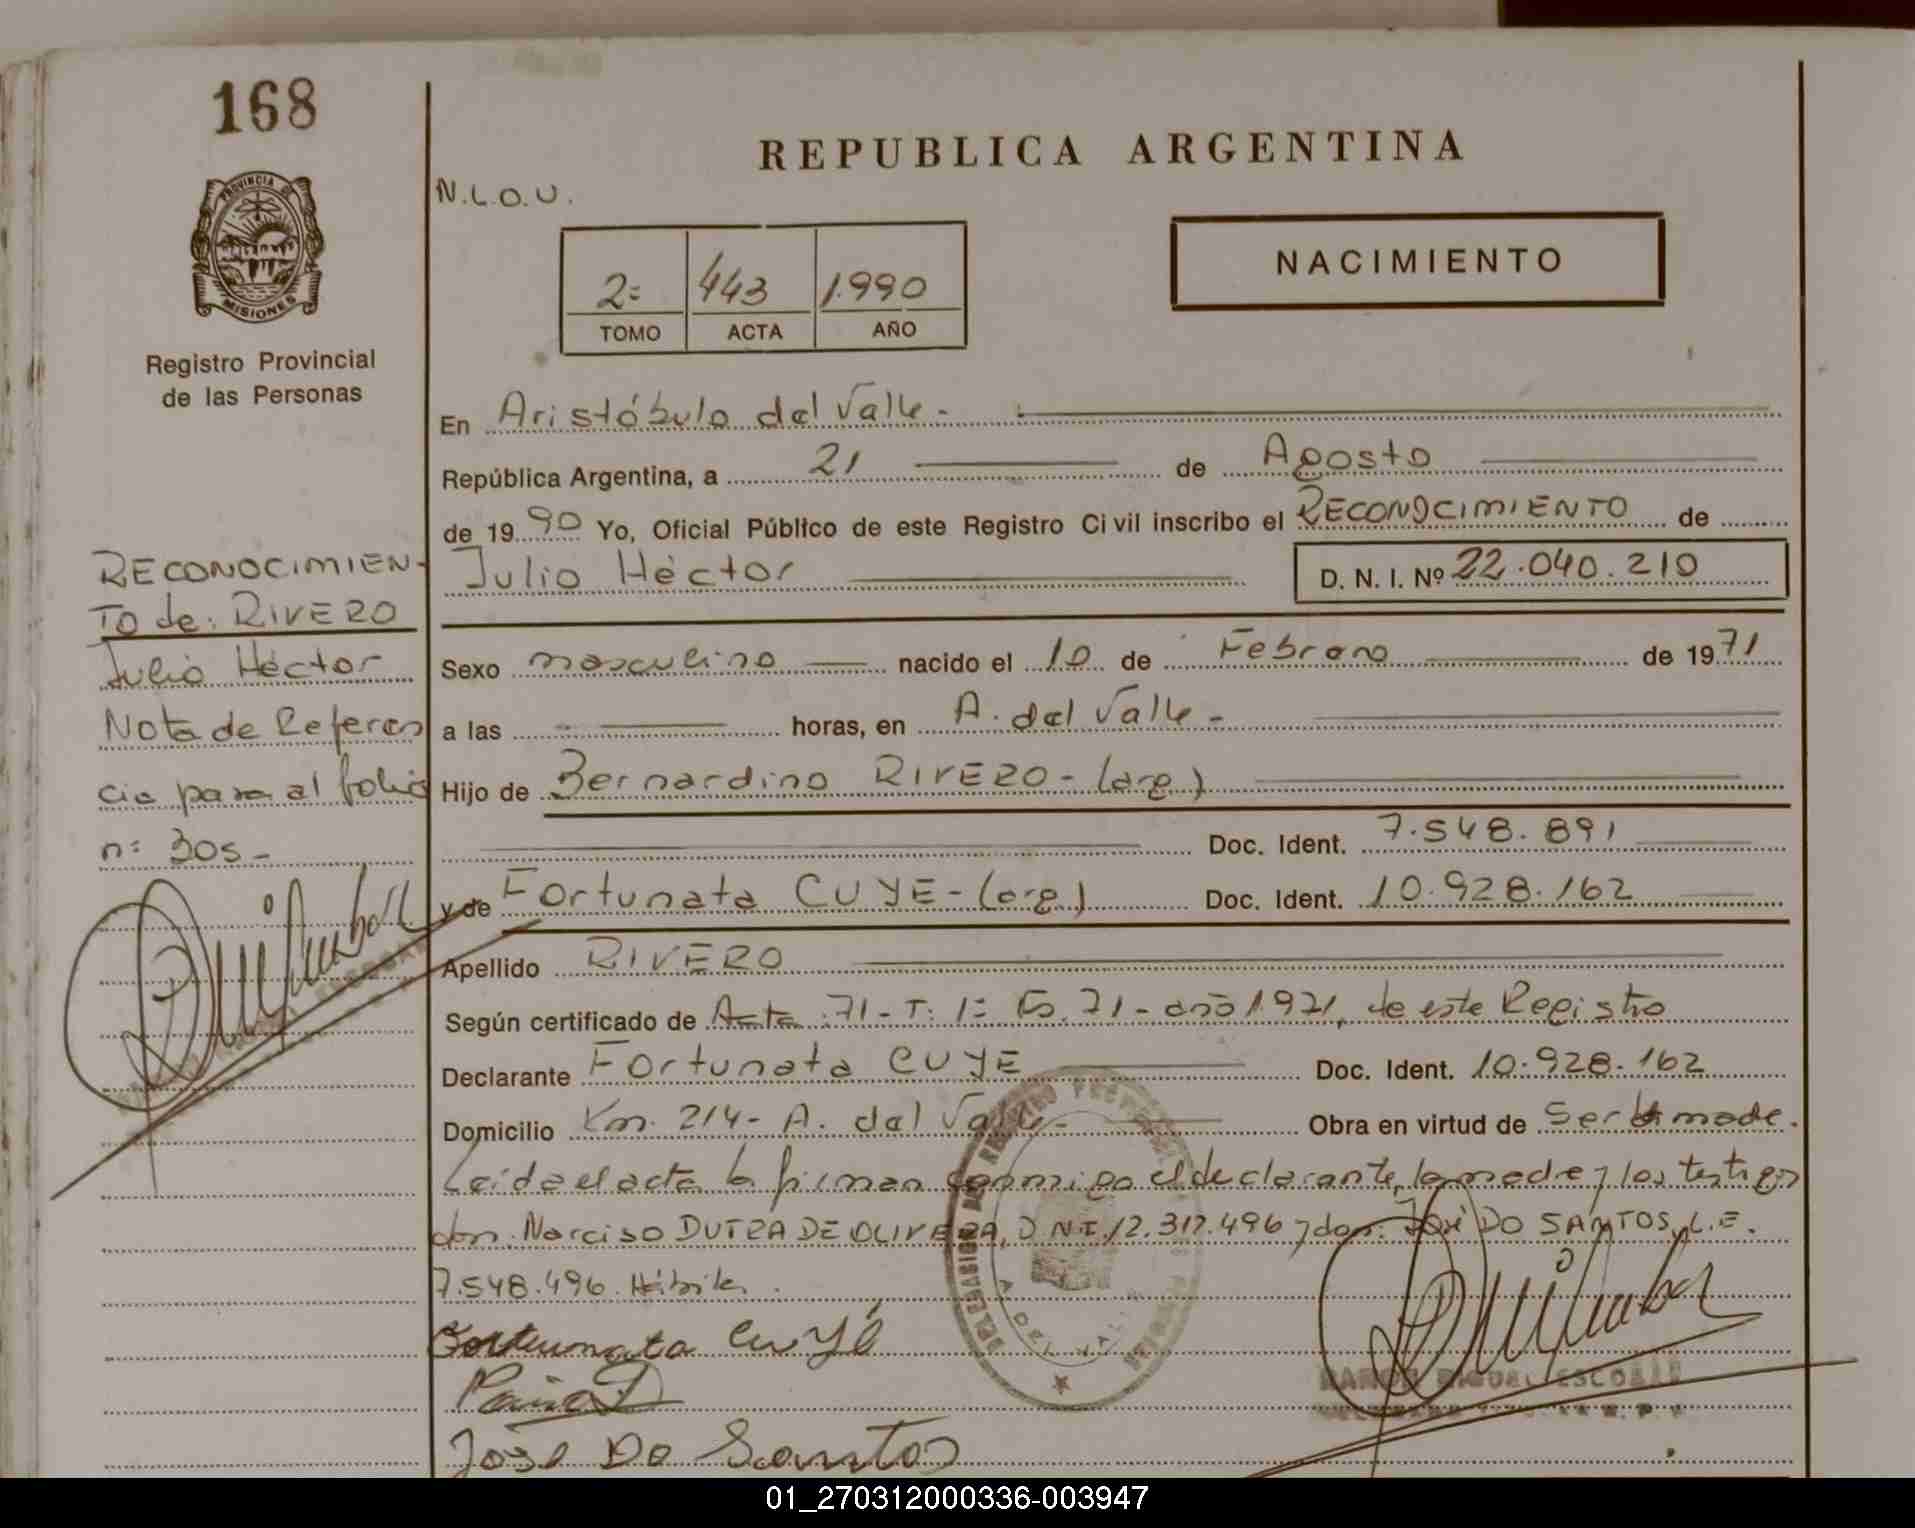 168
REPUBLICA ARGENTINA
N.L.O.U.
PROVINCIA DE
MISIONES
Registro Provincial
de las Personas
2= 443 1.990
TOMO ACTA AÑO
NACIMIENTO
En Aristóbulo del Valle.-
República Argentina, a 21 de Agosto
de 1990 Yo, Oficial Público de este Registro Civil inscribo el RECONOCIMIENTO de
Julio Héctor D. N. I. Nº 22.040.210
Sexo masculino nacido el 10 de Febrero de 1971
a las horas, en A. del Valle -
Hijo de Bernardino RIVERO - (arg)
Doc. Ident. 7.548.891
y de Fortunata CUYE - (arg) Doc. Ident. 10.928.162
Apellido RIVERO
Según certificado de Acta 71 - T: 1= Fo. 71 - año 1971, de este Registro
Declarante Fortunata CUYE Doc. Ident. 10.928.162
Domicilio Km. 214 - A. del Valle - Obra en virtud de Ser madre.
Leída el acta la firman conmigo el declarante, la madre y los testigos
don. Narciso DUTRA DE OLIVERA, D.N.I. 12.317.496 y don: José DO SANTOS, L.E.
7.548.496. Hábiles.
Fortunata Cuyé
José Do Santos
RAMON MIGUEL ESCOBAR
RECONOCIMIEN-
TO de: RIVERO
Julio Héctor
Nota de Referen
cia para al folio
n: 305 -
01_270312000336-003947